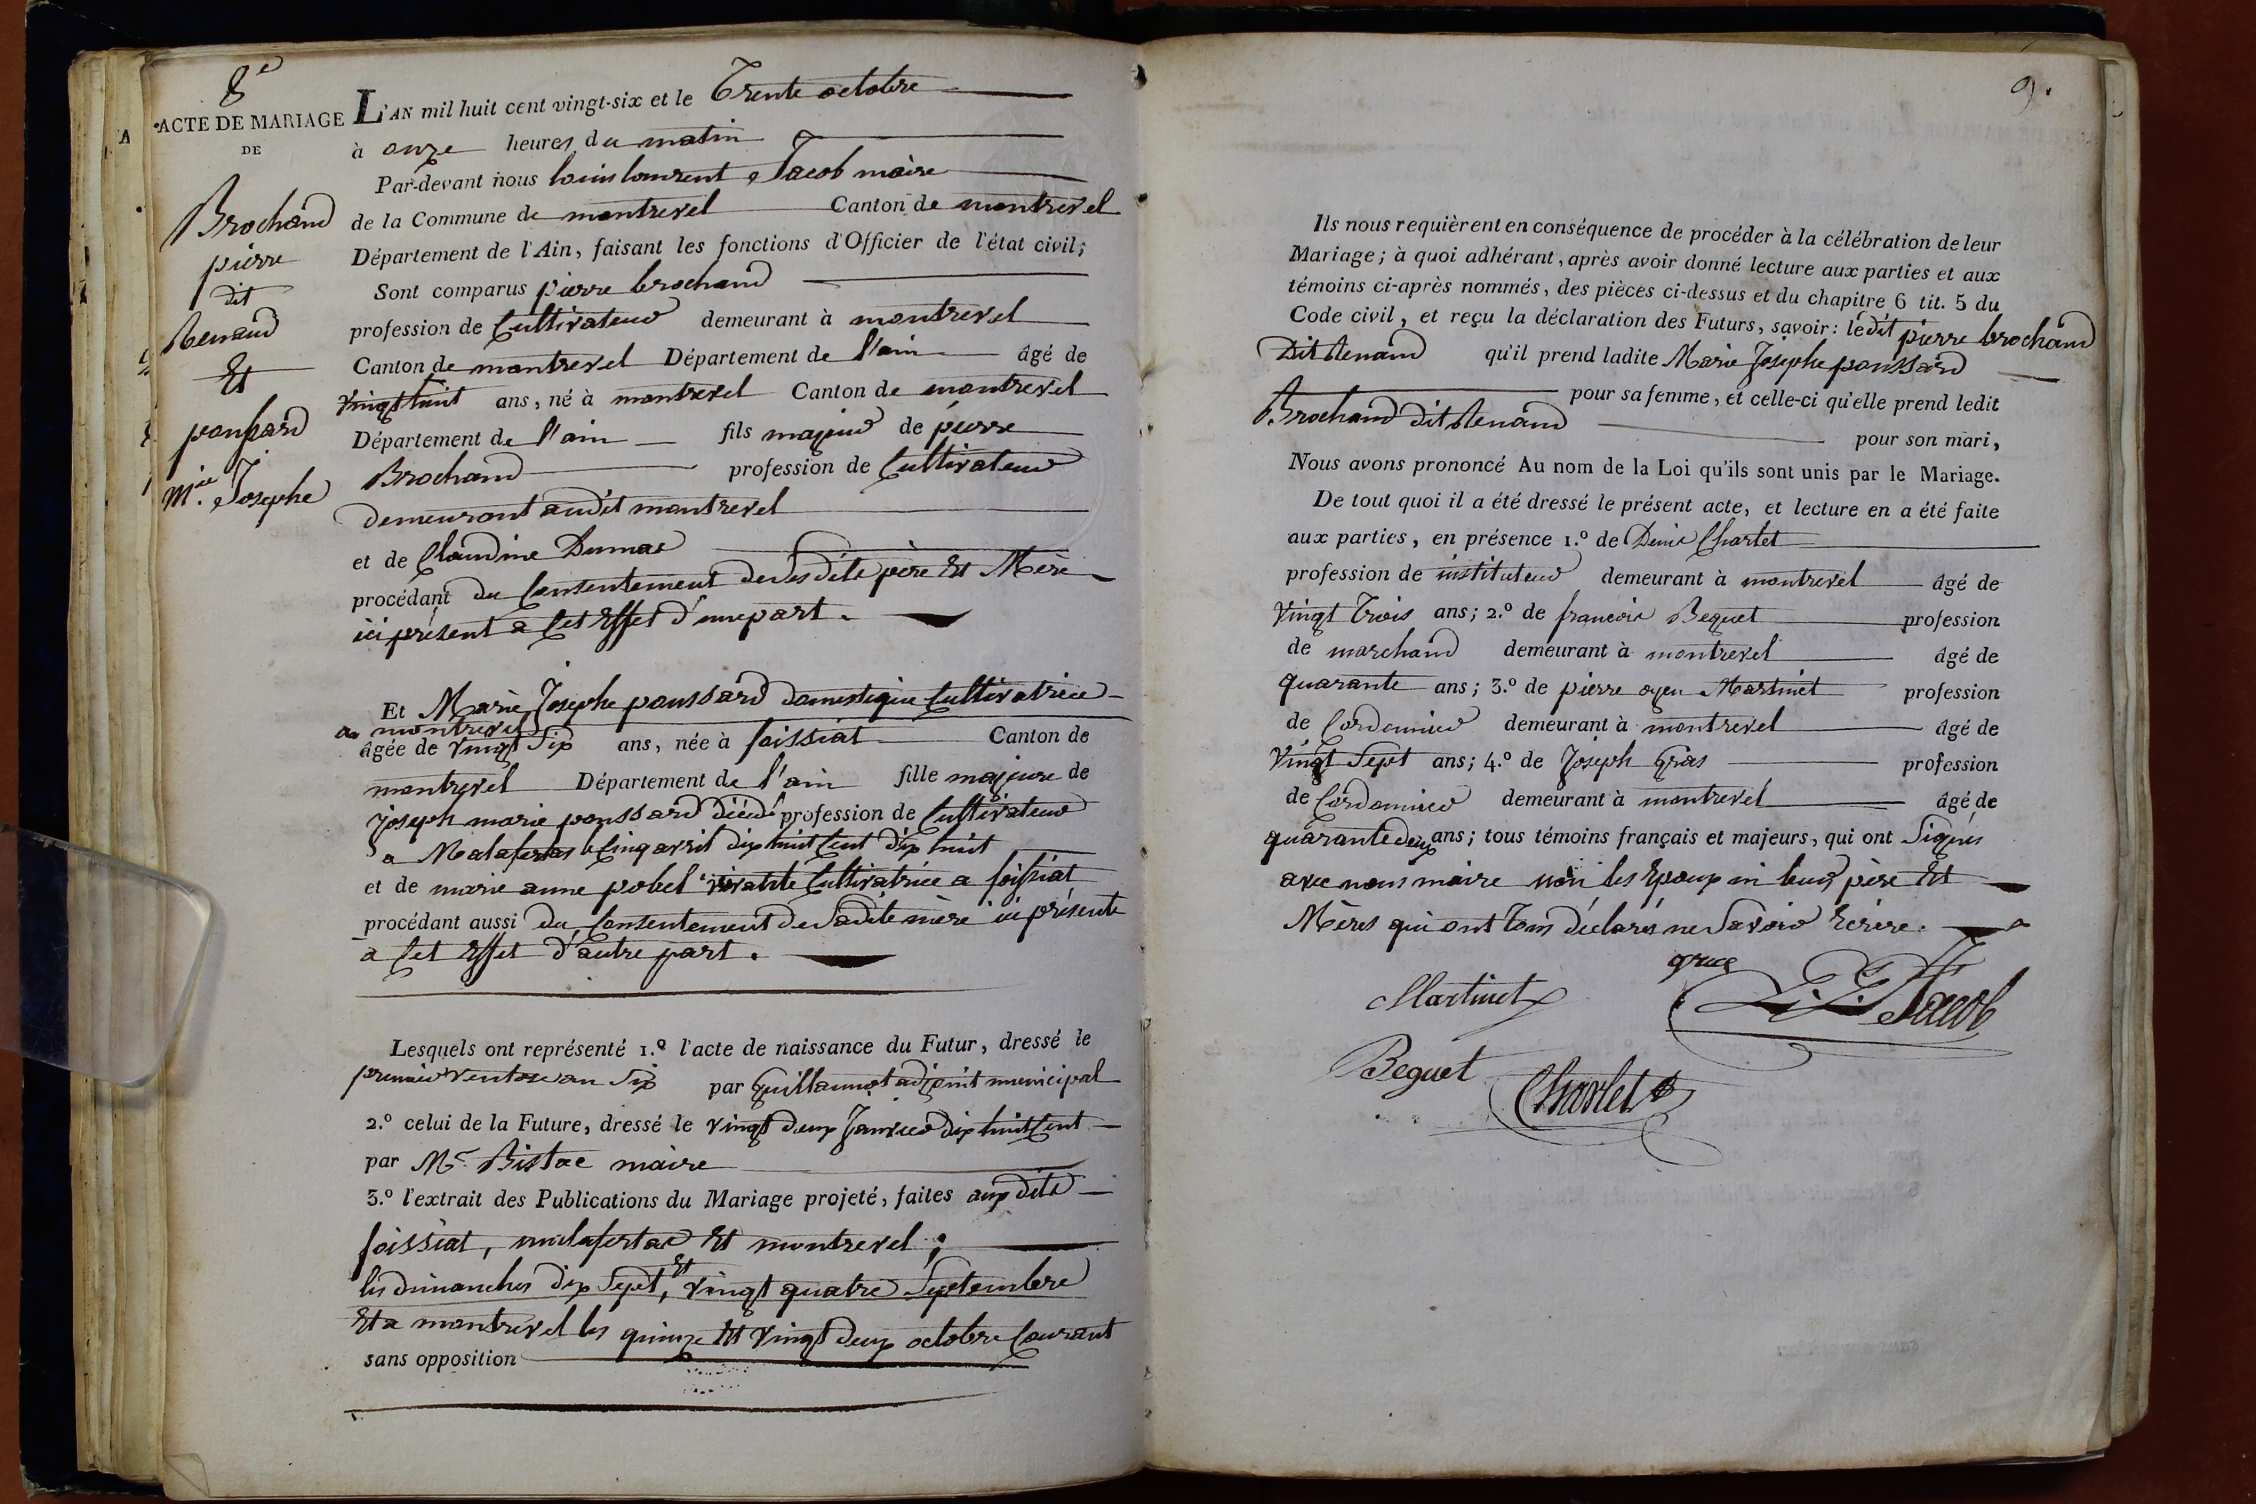 8e
ACTE DE MARIAGE
DE
Brochand
pierre
dit
Renaud
Et
poussard
Mie Josephe
L'AN mil huit cent vingt-six et le Trente octobre
à onze heures du matin
Par-devant nous louis laurent Jacob maire
de la Commune de montrevel Canton de montrevel
Département de l'Ain, faisant les fonctions d'Officier de l'état civil;
Sont comparus pierre brochand
profession de Cultivateur demeurant à montrevel
Canton de montrevel Département de l'ain âgé de
vingt huit ans, né à montrevel Canton de montrevel
Département de l'ain fils majeur de pierre
Brochand profession de Cultivateur
demeurant audit montrevel
et de Claudine Dumas
procédant du Consentement de ses dits père Et Mère
ici présent a Cet Effet d'une part.
Et Marie Josephe poussard domestique Cultivatrice
a montrevel
âgée de vingt Six ans, née à foissiat Canton de
montrevel Département de l'ain fille majeure de
joseph marie poussard décédé profession de Cultivateur
a Malafretas le Cinq avril dix huit Cent dix huit
et de marie anne pobel vivante Cultivatrice a foissiat
procédant aussi du Consentement de Sadite mère ici présente
a Cet Effet d'autre part.
Lesquels ont représenté 1.º l'acte de naissance du Futur, dressé le
premier ventose an Six par Guillaumot adjoint municipal
2.º celui de la Future, dressé le vingt deux Janvier dix huit Cent
par Mr. Bistac maire
3.º l'extrait des Publications du Mariage projeté, faites aux dits
foissiat, malafretas Et montrevel;
les dimanches dix Sept, Et vingt quatre Septembre
Et a montrevel les quinze Et vingt deux octobre Courant
sans opposition
9.
Ils nous requièrent en conséquence de procéder à la célébration de leur
Mariage; à quoi adhérant, après avoir donné lecture aux parties et aux
témoins ci-après nommés, des pièces ci-dessus et du chapitre 6 tit. 5 du
Code civil, et reçu la déclaration des Futurs, savoir: ledit pierre brochand
Dit Renaud qu'il prend ladite Marie Josephe poussard
pour sa femme, et celle-ci qu'elle prend ledit
p. Brochand dit Renaud pour son mari,
Nous avons prononcé Au nom de la Loi qu'ils sont unis par le Mariage.
De tout quoi il a été dressé le présent acte, et lecture en a été faite
aux parties, en présence 1.º de Denis Charlet
profession de instituteur demeurant à montrevel âgé de
vingt Trois ans; 2.º de francois Beguet profession
de marchand demeurant à montrevel âgé de
quarante ans; 3.º de pierre oyen Martinet profession
de Cordonnier demeurant à montrevel âgé de
vingt Sept ans; 4.º de Joseph Gras profession
de Cordonnier demeurant à montrevel âgé de
quarante deux ans; tous témoins français et majeurs, qui ont Signés
avec nous maire non les Epoux ni leurs père Et
Mères qui ont tous déclarés ne Savoir Ecrire.
Martinet gras L. L. Jacob
Beguet Charlet